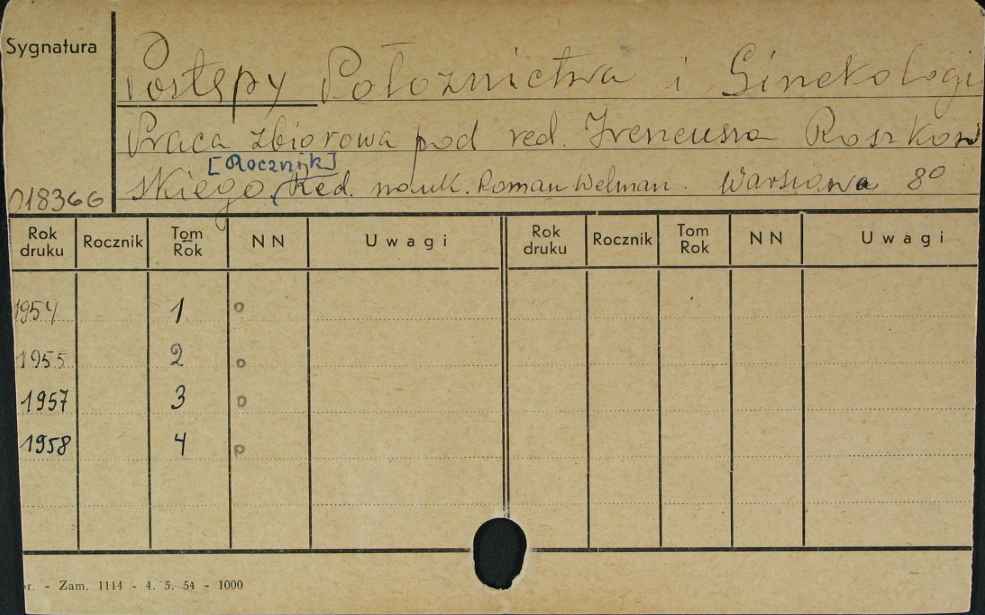 Sygnatura
Postępy Położnictwa i Ginekologi
Praca zbiorowa pod red. Ireneusza Roszkow
[Rocznik]
skiego, Red. nauk. Roman Welman. Warszawa 8°
018366
Rok druku Rocznik Tom Rok NN Uwagi Rok druku Rocznik Tom Rok NN Uwagi
1954 1 o
1955 2 o
1957 3 o
1958 4 p
r. - Zam. 1144 - 4. 5. 54 - 1000